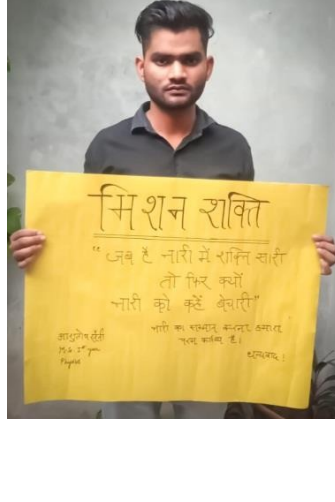 मिशन शक्ति
"जब है नारी में शक्ति सारी
तो फिर क्यों
नारी को कहें बेचारी"
नारी का सम्मान करना हमारा
परम कर्तव्य है।
धन्यवाद!
Physics